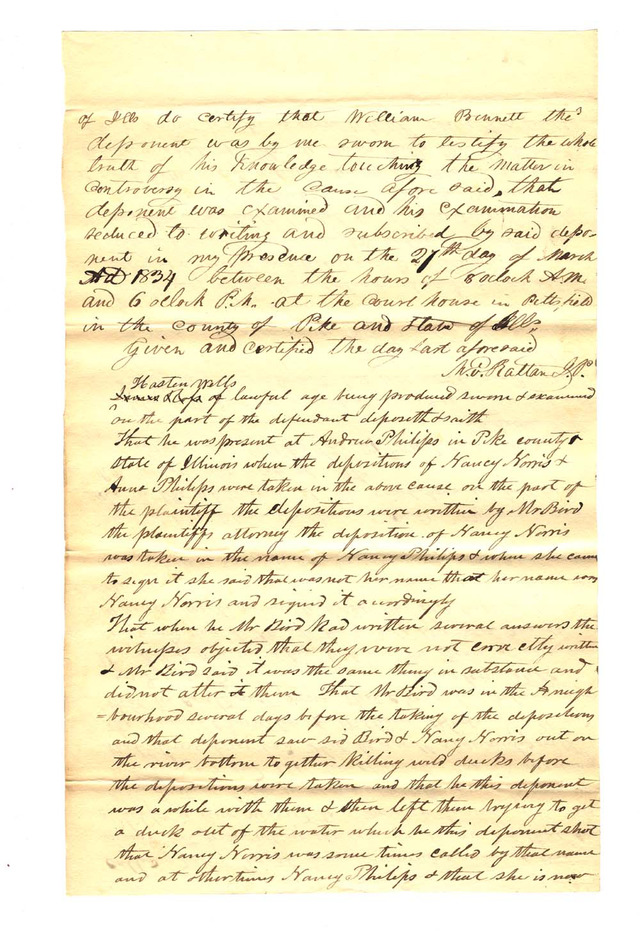 of Ills do certify that William Bennett the
deponent was by me sworn to testify the whole
truth of his Knowledge touching the matter in
controversy in the Cause afore said, that
deponent was examined and his examination
reduced to writing and subscribed by said depo-
nent in my presence on the 27th day of March
AD 1834 between the hours of 8 oclock A.M.
and 6 oclock P.M. at the Court house in Pittsfield
in the county of Pike and state of Ills,
Given and certified the day last aforesaid
Rattan J.P.
Hasten
of lawful age being produced sworn & examined
on the part of the defendant deposeth & saith
That he was present at Andrew Philips in Pike county &
state of Illinois when the depositions of Nancy Norris &
Anna Philips were taken in the above cause on the part of
the plaintiff the depositions were written by Mr Bird
the plaintiffs attorney the deposition of Nancy Norris
was taken in the name of Nancy Philips & when she came
to sign it she said that was not her name that her name was
Nancy Norris and signed it accordingly
That when he Mr Bird had written several answers the
witnesses objected that they were not correctly written
& Mr Bird said it was the same thing in substance and
did not alter them That Mr Bird was in the neigh
=bourhood several days before the taking of the depositions
and that deponent saw sid Bird & Nancy Norris out on
the river bottom to gether killing wild ducks before
the depositions were taken and that he this deponent
was a while with them & then left them trying to get
a duck out of the water which he this deponent shot
that Nancy Norris was some times called by that name
and at other times Nancy Philips & that she is now